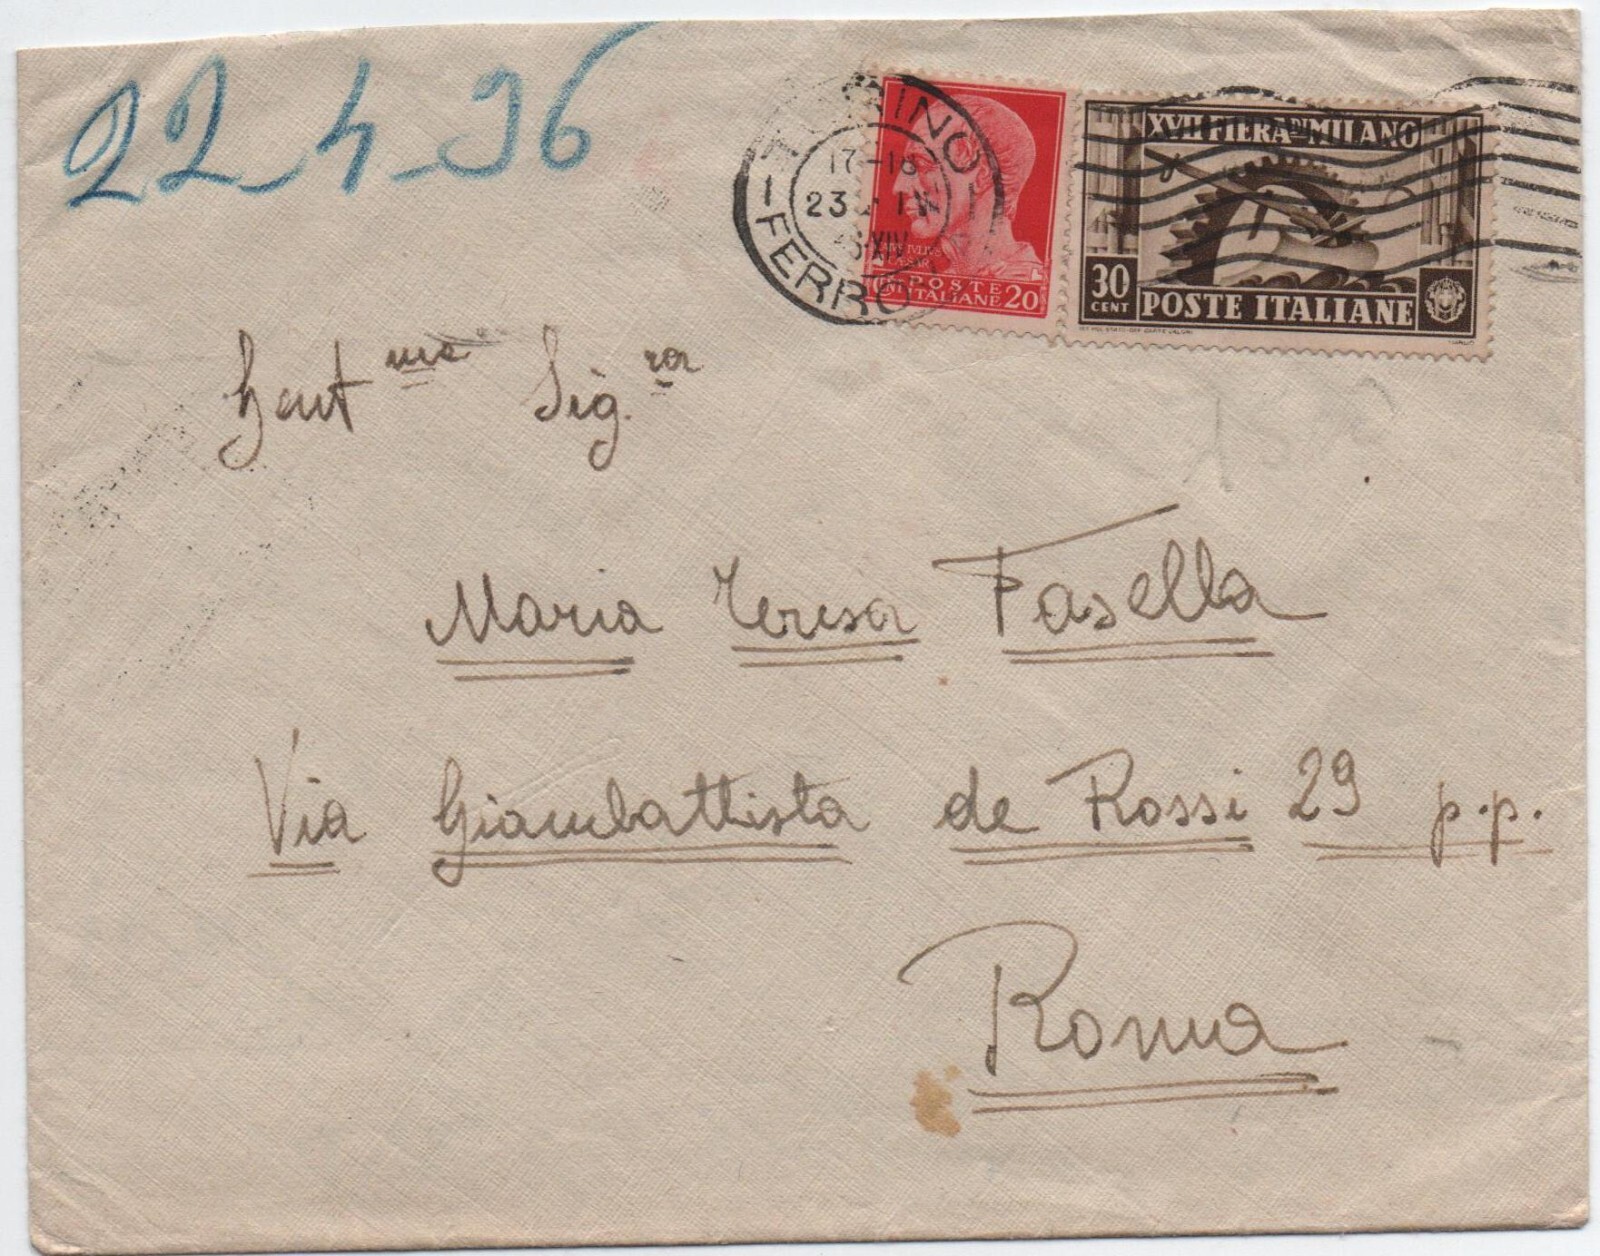 22-4-36
TORINO
FERRO
17-18
23
XIV
CAIVS IVLIVS
CAESAR
POSTE
ITALIANE 20
XVII FIERA DI MILANO
30
CENT
POSTE ITALIANE
Gent me Sig. ra
Maria Teresa Fasella
Via Giambattista de Rossi 29 p.p.
Roma